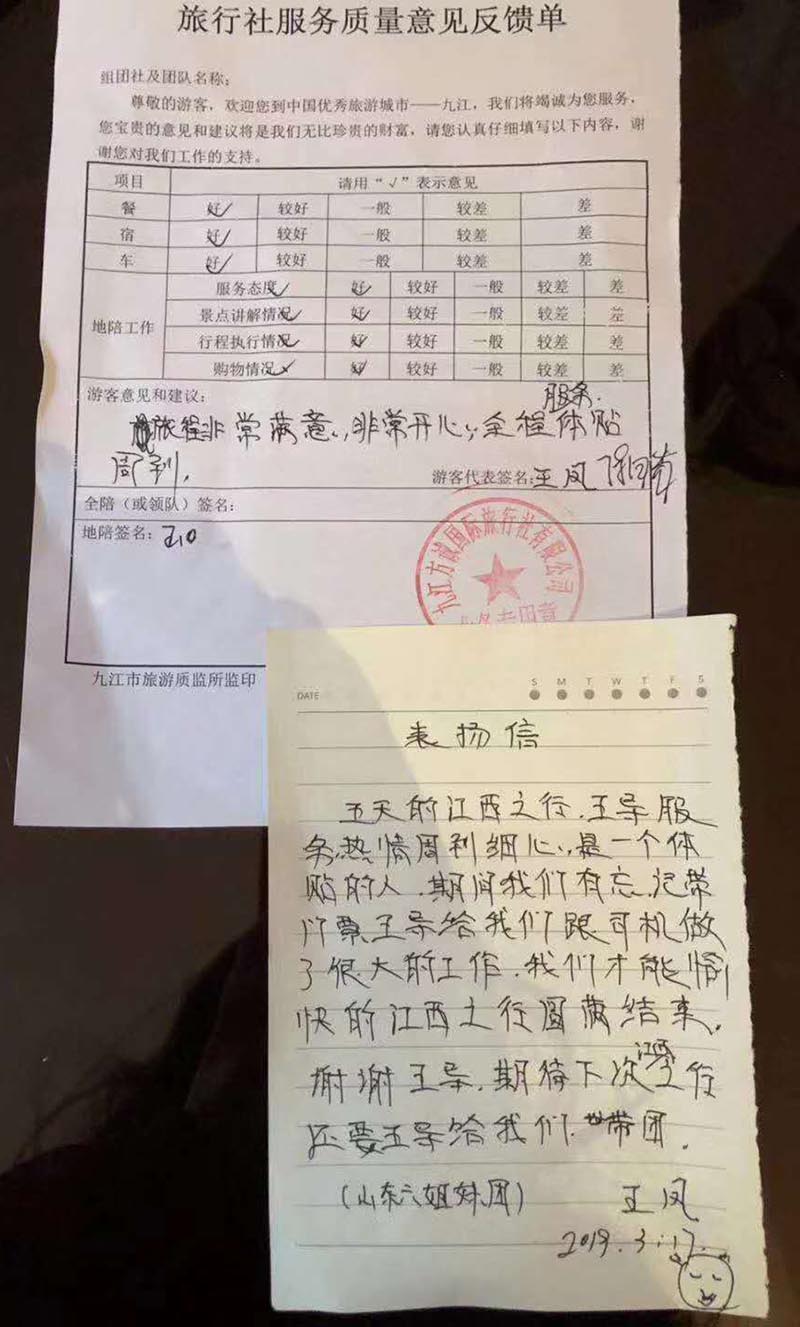 旅行社服务质量意见反馈单
组团社及团队名称：
尊敬的游客，欢迎您到中国优秀旅游城市——九江，我们将竭诚为您服务，
您宝贵的意见和建议将是我们无比珍贵的财富，请您认真仔细填写以下内容，谢
谢您对我们工作的支持。
项目 请用“√”表示意见
餐 好✓ 较好 一般 较差 差
宿 好✓ 较好 一般 较差 差
车 好✓ 较好 一般 较差 差
地陪工作
服务态度✓ 好✓ 较好 一般 较差 差
景点讲解情况✓ 好✓ 较好 一般 较差 差
行程执行情况✓ 好✓ 较好 一般 较差 差
购物情况✓ 好✓ 较好 一般 较差 差
游客意见和建议：
服务.
旅程非常满意，非常开心，全程体贴
周到，
游客代表签名：王凤
全陪（或领队）签名：
地陪签名：
九江方诚国际旅行社有限公司
业务专用章
九江市旅游质监所监印
DATE S M T W T F S
表扬信
五天的江西之行，王导服
务热情周到细心，是一个体
贴的人，期间我们有忘记带
门票王导给我们跟司机做
了很大的工作，我们才能愉
快的江西之行圆满结束。
谢谢王导，期待下次江西之行
还要王导给我们带团。
（山东六姐妹团） 王凤
2019.3.17.